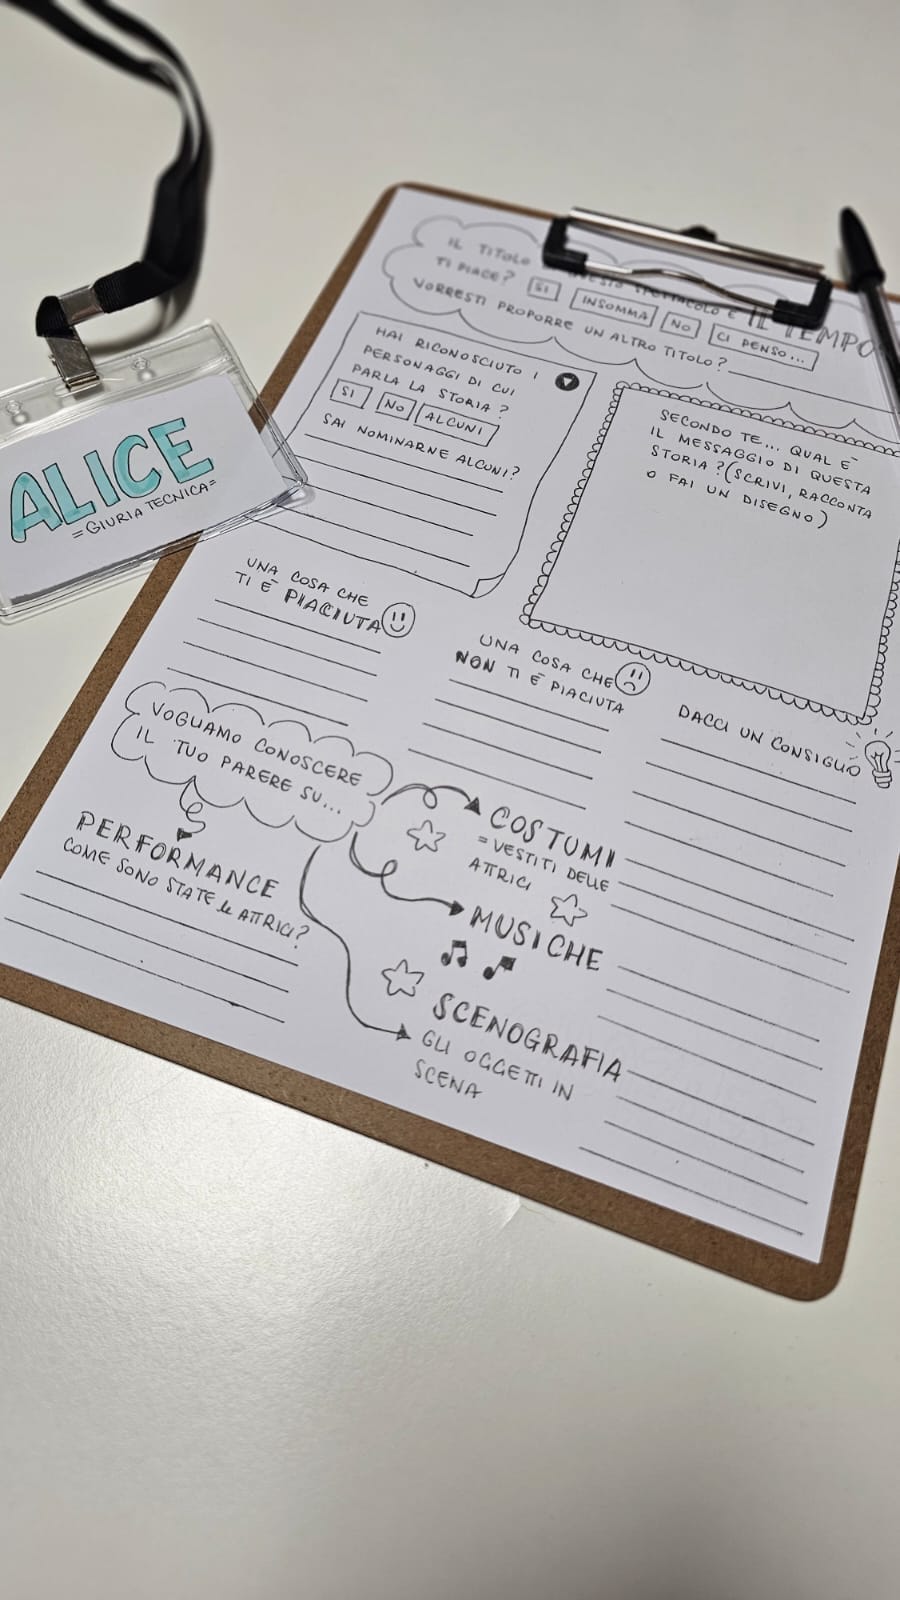 IL TITOLO DI QUESTO SPETTACOLO È IL TEMPO
TI PIACE? SI INSOMMA NO CI PENSO...
VORRESTI PROPORRE UN ALTRO TITOLO?
HAI RICONOSCIUTO I
PERSONAGGI DI CUI
PARLA LA STORIA?
SI NO ALCUNI
SAI NOMINARNE ALCUNI?
SECONDO TE... QUAL È
IL MESSAGGIO DI QUESTA
STORIA? (SCRIVI, RACCONTA
O FAI UN DISEGNO)
ALICE
=GIURIA TECNICA=
UNA COSA CHE
TI È PIACIUTA
UNA COSA CHE
NON TI È PIACIUTA
DACCI UN CONSIGLIO
VOGLIAMO CONOSCERE
IL TUO PARERE SU...
PERFORMANCE
COME SONO STATE LE ATTRICI?
COSTUMI
= VESTITI DELLE
ATTRICI
MUSICHE
SCENOGRAFIA
GLI OGGETTI IN
SCENA